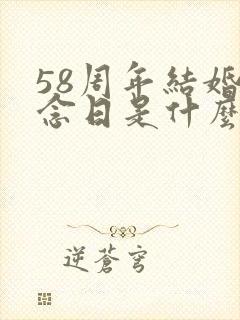 58周年結婚
念日是什麼
逆蒼穹